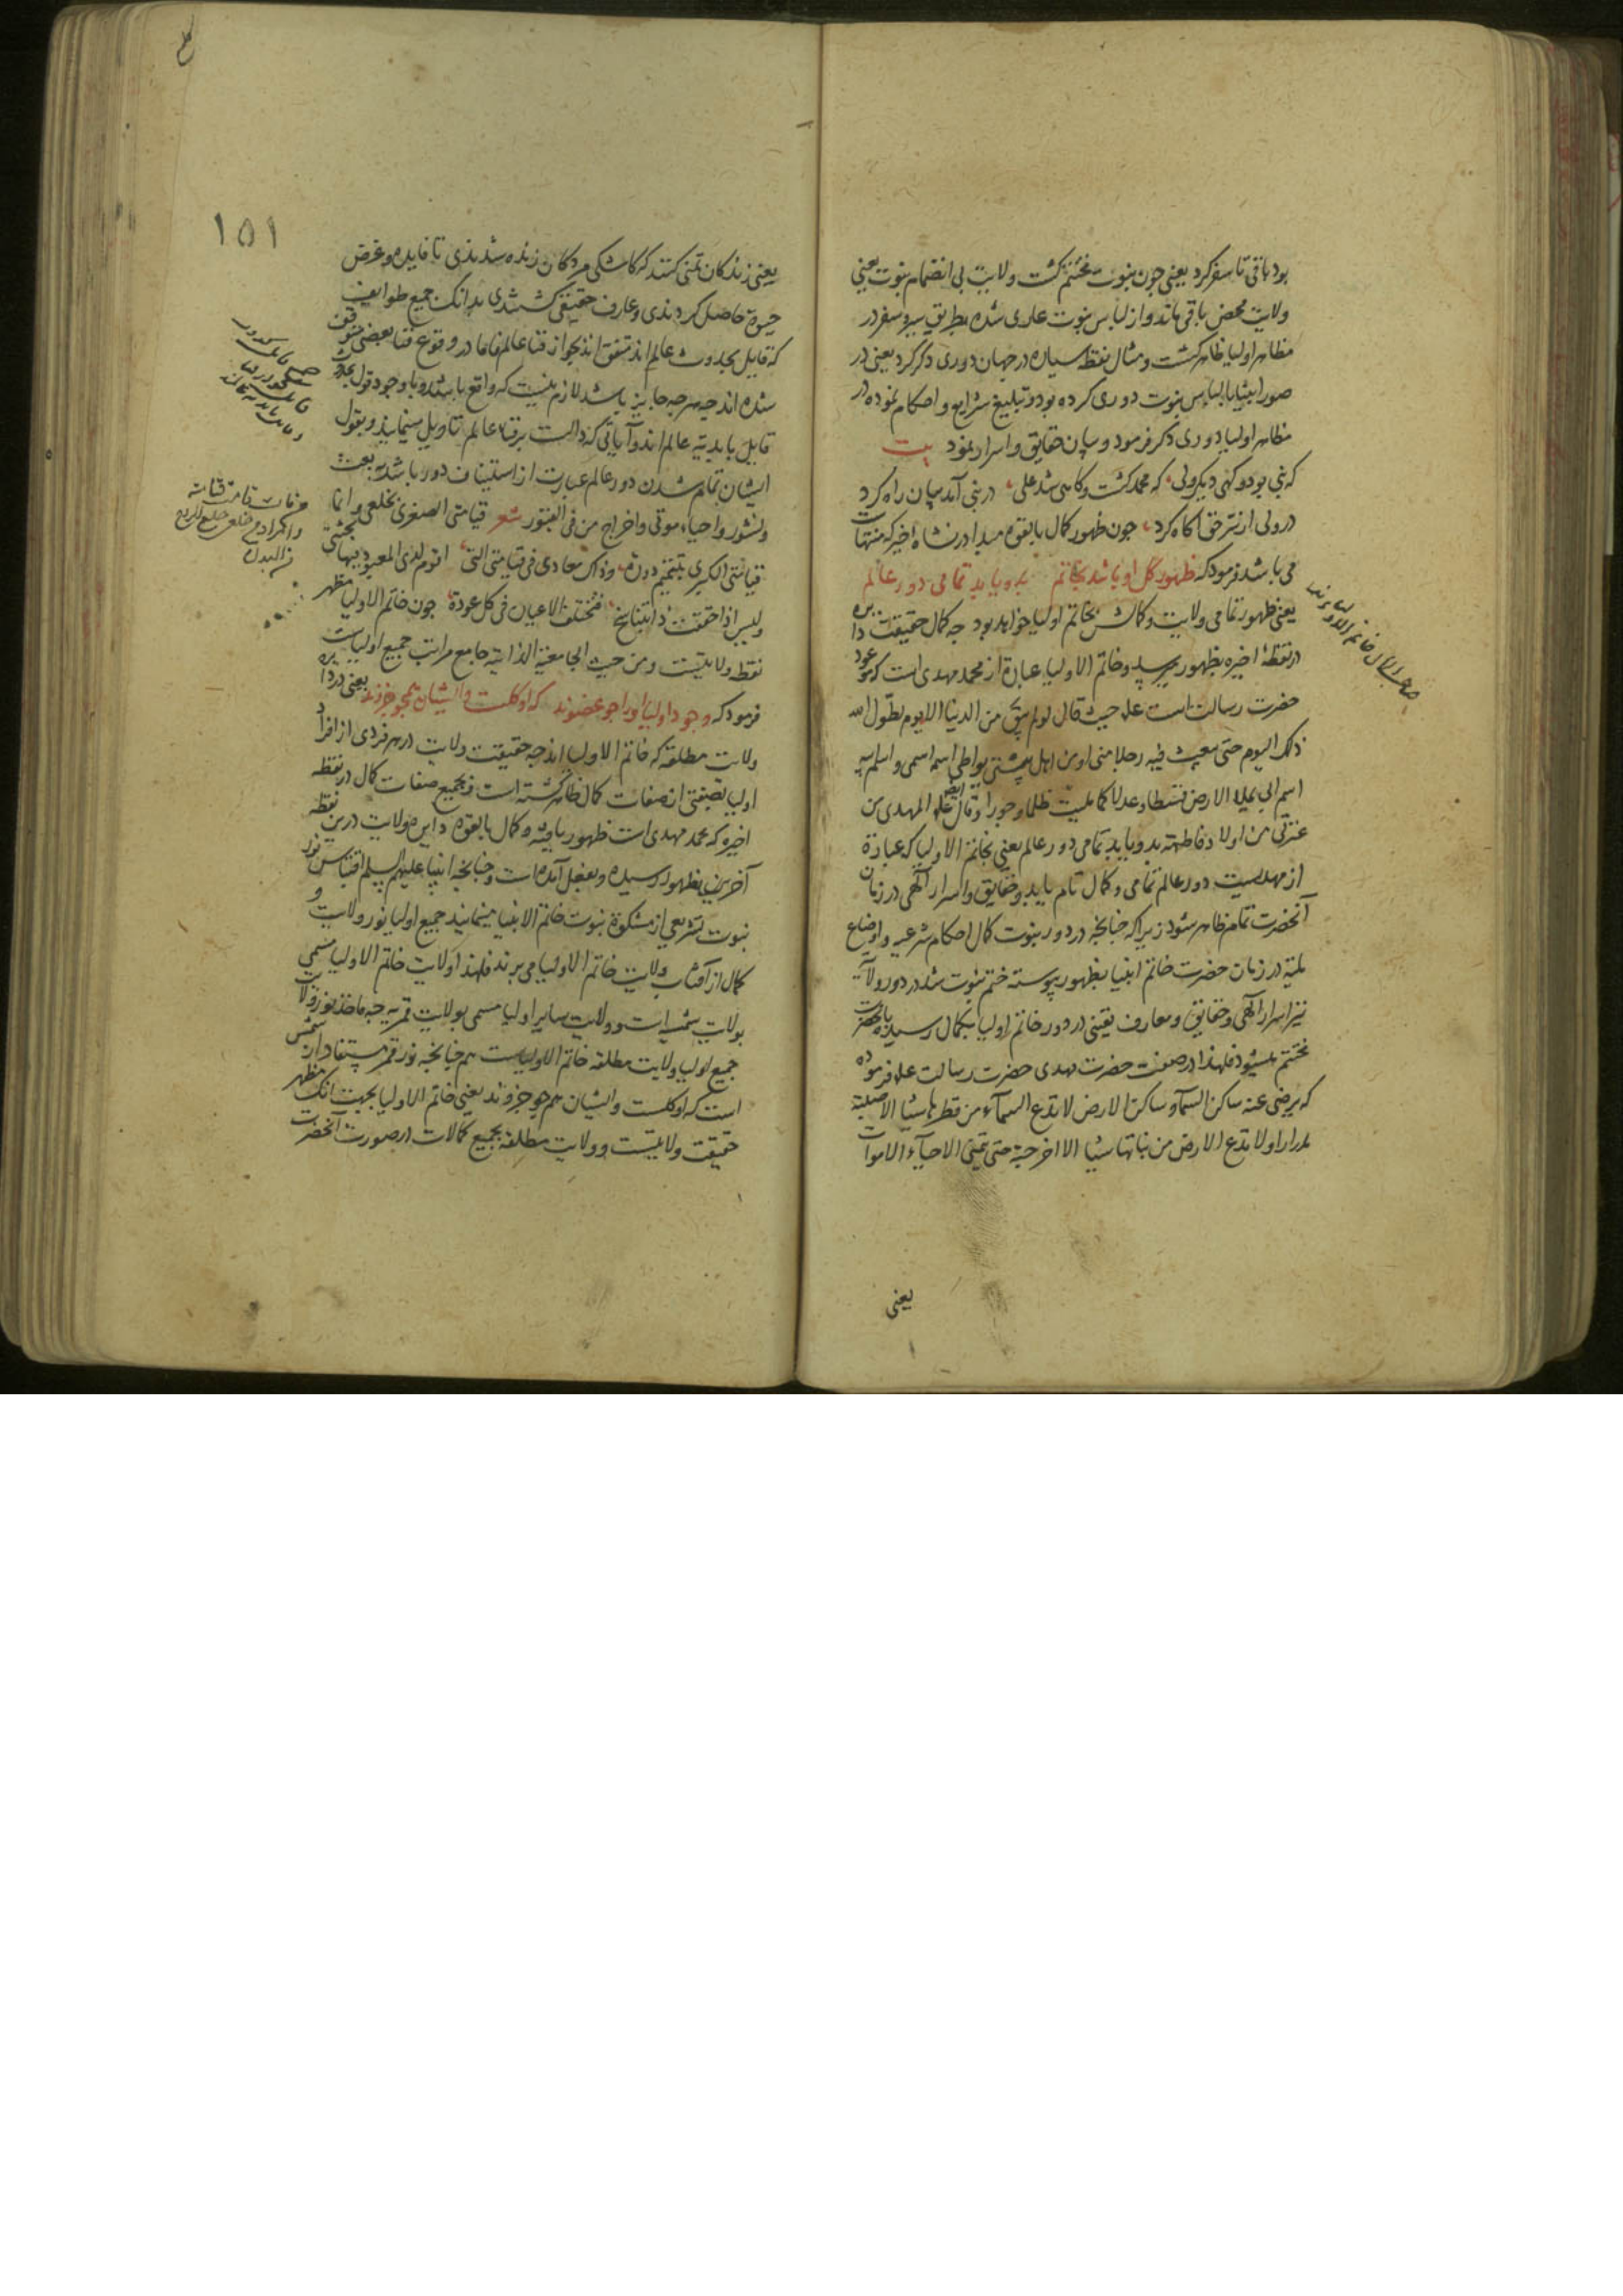 بود باقی تا سفر کرد یعنی چون نبوت مختتم کشت ولایت بی انضمام نبوت یعنی
ولایت محض باقی ماند و از لباس نبوت عاری شده بطریق سیر و سفر در
مظاهر اولیا ظاهر کشت و مثال نقطه سیاره در جهان دوری دکر کرد یعنی در
صور انبیا با لباس نبوت دوری کرده بود و تبلیغ شرایع و احکام نموده در
مظاهر اولیا دوری دکر فرمود و بیان حقایق و اسرار نمود بیت
که نبی بود و کهی دیکر ولی که محمد کشت و کاهی شد علی در نبی آمد بیان راه کرد
در ولی از سر حق آکاه کرد چون ظهور کمال بالقوه مبدا در نشاه اخیر که منتهاست
می باشد فرمود که ظهور کل او باشد بخاتم بدو یابد تمامی دور عالم
یعنی ظهور تمامی ولایت و کمالش بخاتم اولیا خواهد بود چه کمال حقیقت دایره
در نقطهٔ اخیره بظهور میرسد و خاتم الاولیا عبارة از محمد مهدی است که موعود
حضرت رسالت است علیه حیث قال لو لم یبق من الدنیا الا یوم لطول الله
ذلک الیوم حتی یبعث فیه رجلا منی او من اهل بیتی یواطی اسمه اسمی و اسم ابیه
اسم ابی یملاء الارض قسطا و عدلا کما ملیت ظلما و جورا و قال ایضا علیه المهدی من
عترتی من اولاد فاطمة بدو یابد تمامی دور عالم یعنی بخاتم الاولیا که عبارة
از مهدیست دور عالم تمامی و کمال تام یابد و حقایق و اسرار الهی در زمان
آنحضرت تمام ظاهر شود زیرا که چنانچه در دور نبوت کمال احکام شرعیه و اوضاع
ملیّه در زمان حضرت خاتم انبیا بظهور پیوسته ختم نبوت شد در دور ولایت
نیز اسرار الهی و حقایق و معارف یقینی در دور خاتم اولیا بکمال رسیده بآنحضرت
مختتم میشود فلهذا در صفت حضرت مهدی حضرت رسالت علیه فرموده
که یرضی عنه ساکن السمآء و ساکن الارض لا تدع السمآء من قطرها شیئا الا صبته
مدرارا و لا تدع الارض من نباتها شیئا الا اخرجته حتی یتمنی الاحیآء الاموات
یعنی
١٥١
یعنی زندکان تمنی کنند که کاشکی مردکان زنده شدندی تا فایده و غرض
حیوة حاصل کردندی و عارف حقیقی کشتندی بدانک جمیع طوایف
که قایل بحدوث عالم اند متفق اند بجواز فنا عالم فاما در وقوع فنا بعضی متوقف
شده اند چه هرچه جایز باشد لازم نیست که واقع باشد و با وجود قول
قایل بابدیّه عالم اند و آیاتی که دالست بر فناء عالم تاویل مینمایند و بقول
ایشان تمام شدن دور عالم عبارت از استیناف دور باشد به بعث
و نشور و احیاء موتی و اخراج من فی القبور شعر قیامتی الصغری بخلعی و انما
قیامتی الکبری بتتمیم دورة و ذاک معادی فی قیامتی التی اقوم لدی المعبود بها
ولیس اذا حققت ذا بتناسخ فتختلف الاعیان فی کل عودة چون خاتم الاولیا مظهر
نقطه ولایتست و من حیث الجامعیة الذاتیة جامع مراتب جمیع اولیاست
فرمود که وجود اولیا او را چو عضوند که او کلست و ایشان همچو جزوند یعنی در دایره
ولایت مطلقه که خاتم الاولیا اند چه حقیقت ولایت در هر فردی از افراد
اولیا بصفتی از صفات کمال ظاهر کشته است و بجمیع صفات کمال در نقطه
اخیره که محمد مهدی است ظهور یافته و کمال بالقوه دایره ولایت درین نقطه
آخرین بظهور رسیده و بفعل آمده است و چنانچه انبیا علیهم السلم اقتباس نور
نبوت تشریعی از مشکوة نبوت خاتم الانبیا مینمایند جمیع اولیا نور ولایت و
کمال از آفتاب ولایت خاتم الاولیا می برند فلهذا ولایت خاتم الاولیا مسمی
بولایت شمسیه است و ولایت سایر اولیا مسمی بولایت قمریه چه ماخذ نور ولایت
جمیع اولیا ولایت مطلقه خاتم الاولیاست هم چنانچه نور قمر مستفاد از شمس
است که او کلست و ایشان هم چو جزوند یعنی خاتم الاولیا بجهت آنک مظهر
حقیقت ولایتست و ولایت مطلقه بجمیع کمالات در صورت آنحضرت